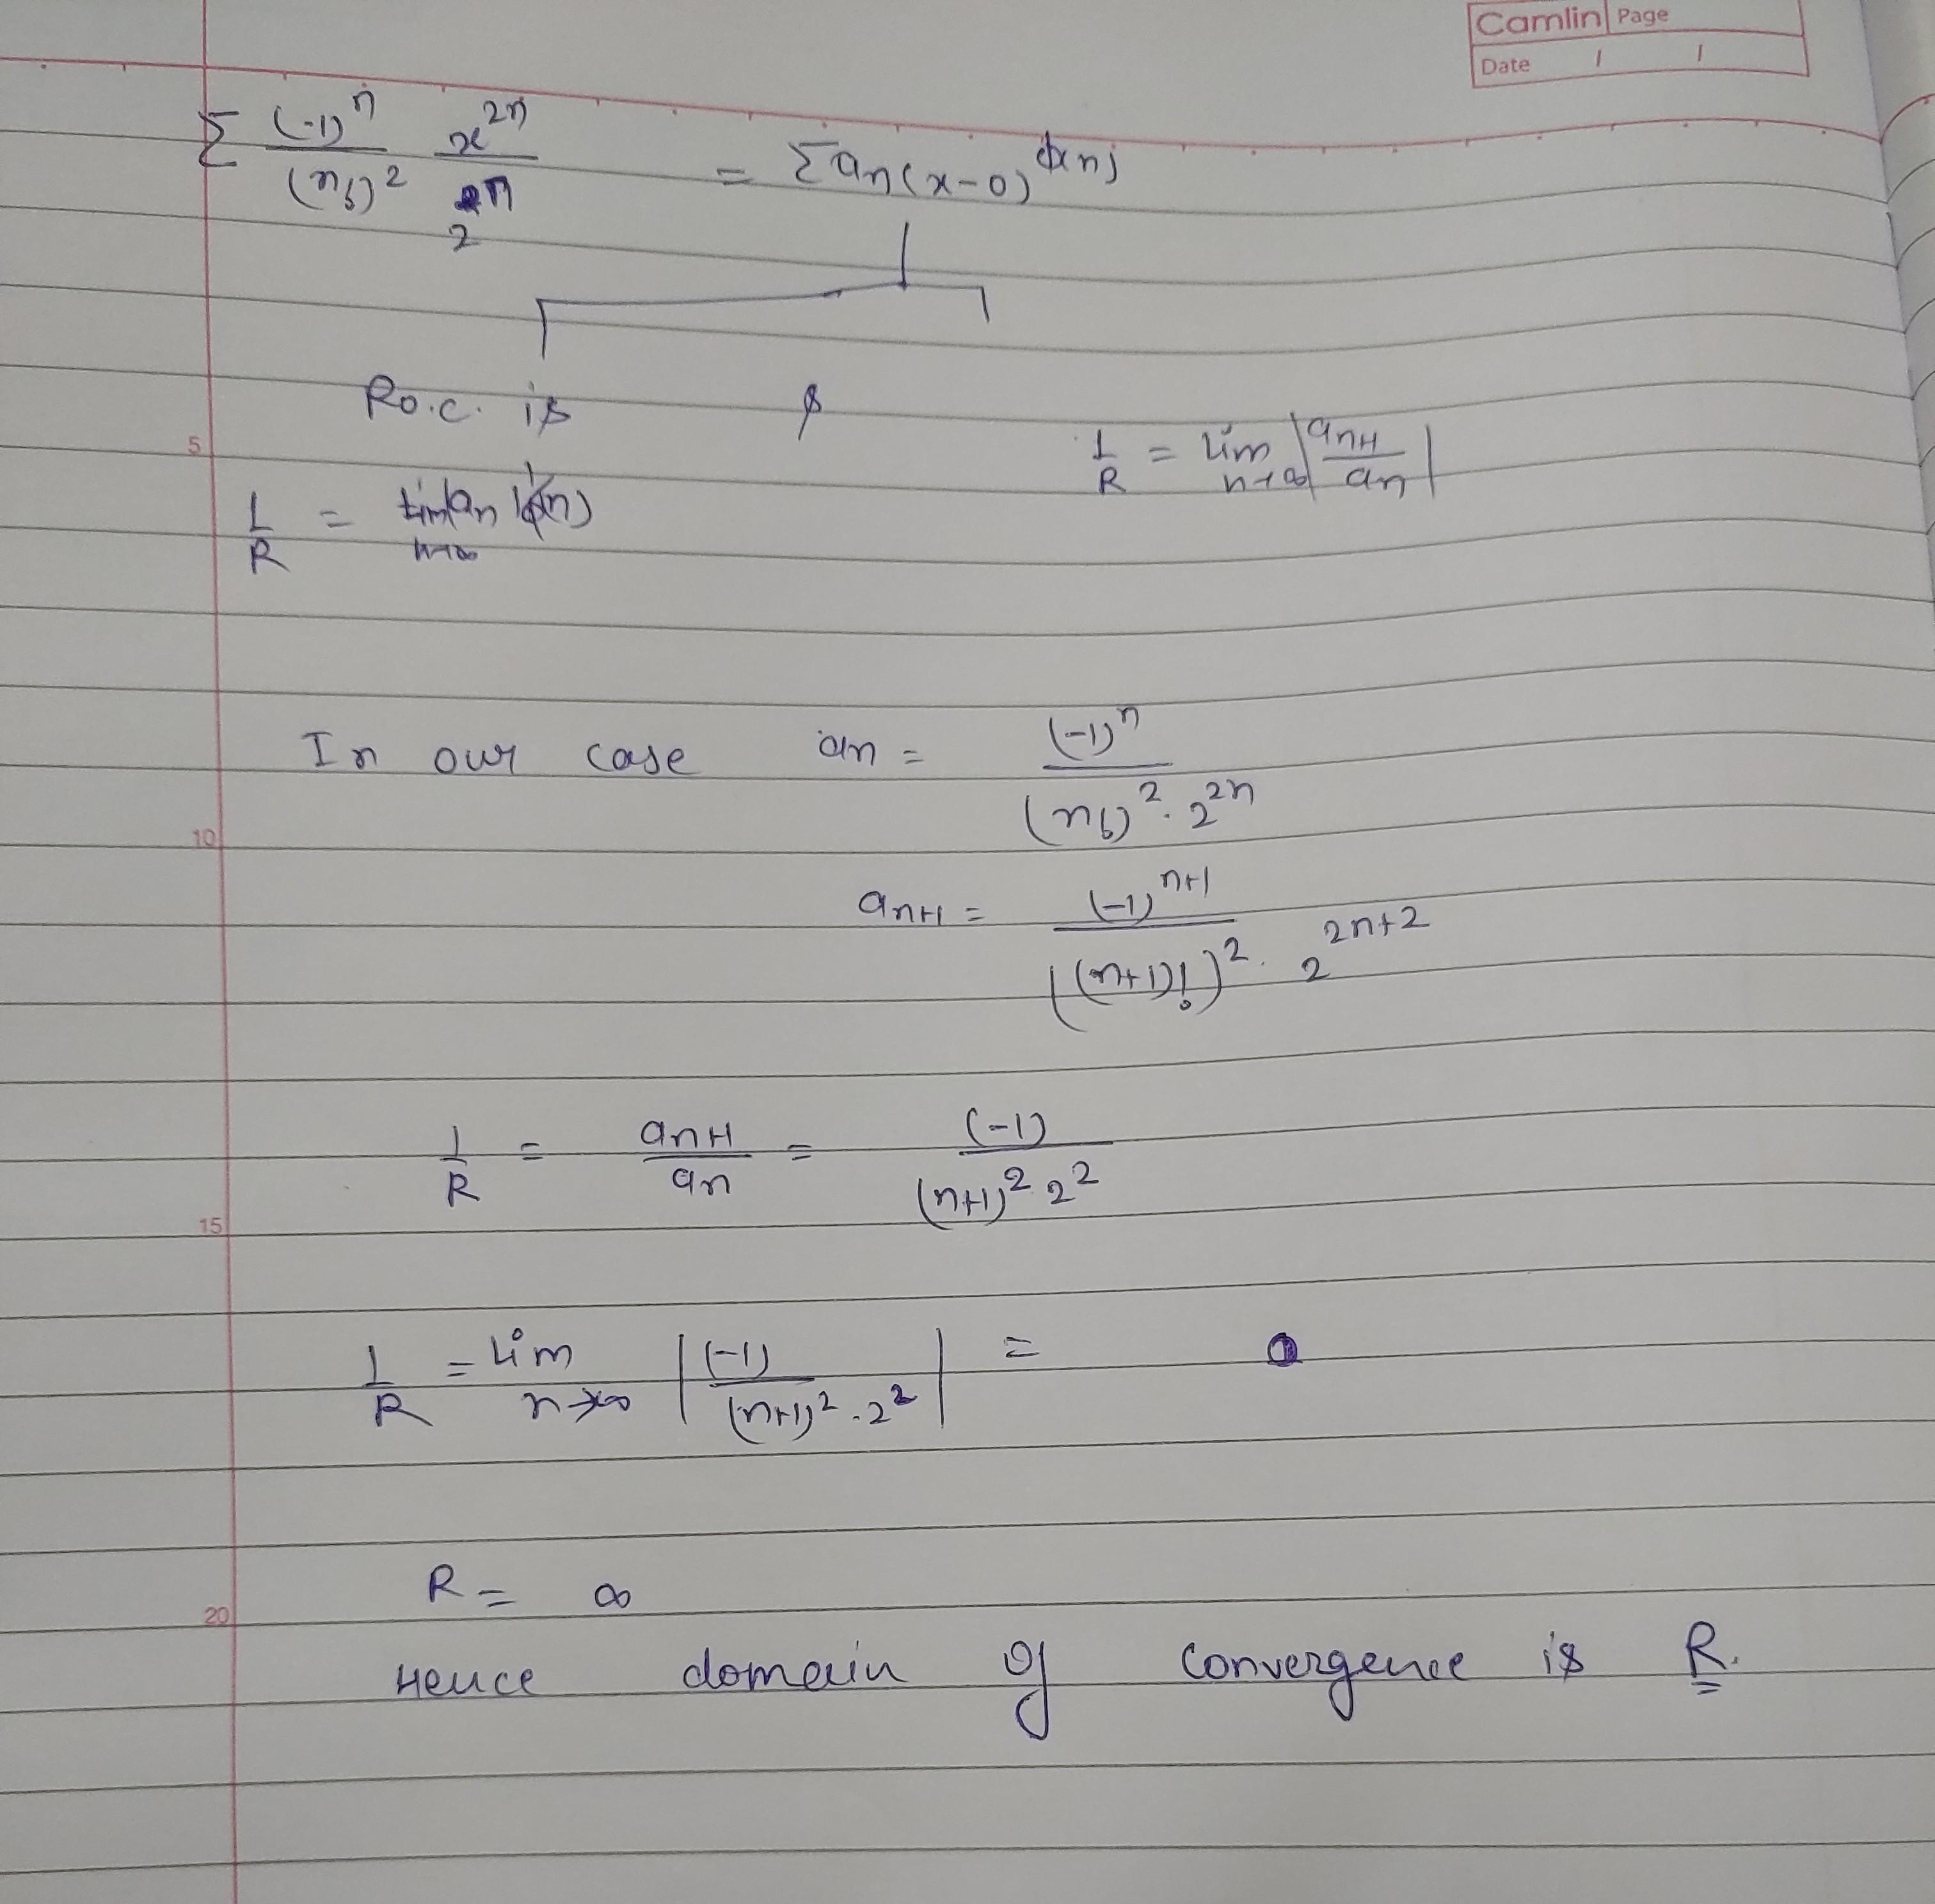 Camlin Page
Date / /
Σ (-1)^n/(n!)^2 x^2n/2^2n = Σ an(x-0)^ϕ(n)
R.o.c. is
5
1/R = lim n→∞ |an+1/an|
1/R = lim n→∞ |an|^1/ϕ(n)
In our case an = (-1)^n/((n!)^2 . 2^2n)
10
an+1 = (-1)^n+1/(((n+1)!)^2 . 2^2n+2)
1/R = an+1/an = (-1)/((n+1)^2 2^2)
15
1/R = lim n→∞ |(-1)/((n+1)^2 . 2^2)| = 0
R = ∞
20
Hence domain of convergence is R.